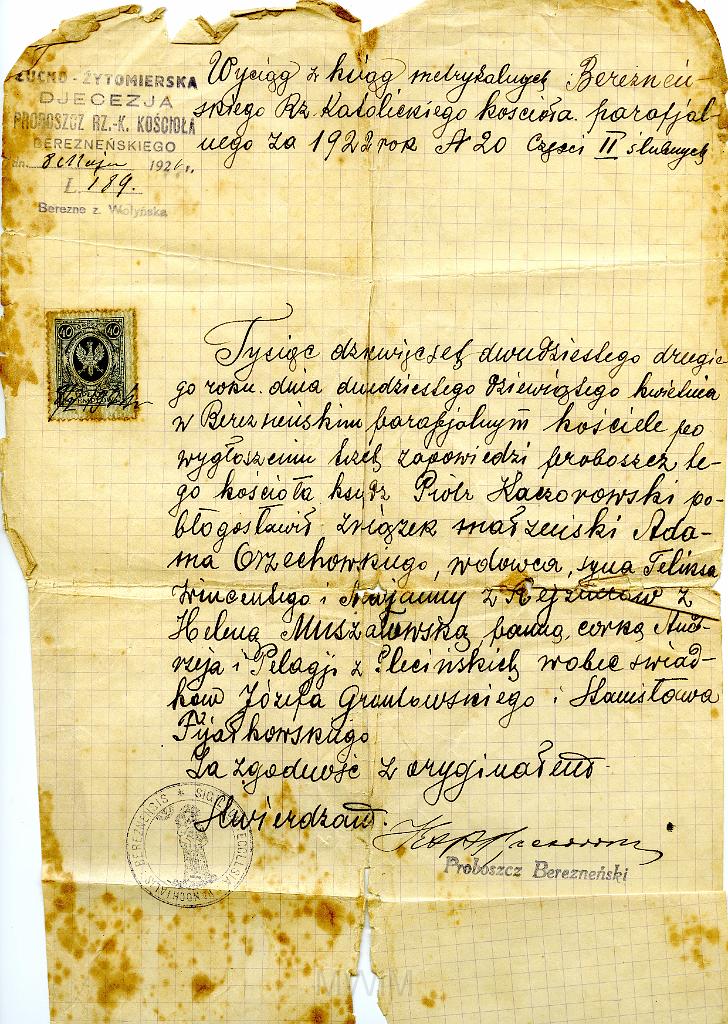 ŁUCKO - ŻYTOMIERSKA
DJECEZJA
PROBOSZCZ RZ.-K. KOŚCIOŁA
BEREZNEŃSKIEGO
dn. 8 Maja 1926 r.
L. 189.
Berezne z. Wołyńska
Wyciąg z ksiąg metrykalnych Berezneń-
skiego Rz. Katolickiego kościoła parafjal-
nego za 1922 rok N 20 Części II ślubnych
40 40
Tysiąc dziewięćset dwudziestego drugie
go roku dnia dwudziestego dziewiątego kwietnia
w Berezneńskim parafjalnym kościele po
wygłoszeniu trzech zapowiedzi proboszcz te-
go kościoła ksiądz Piotr Kaczorowski po-
błogosławił związek małżeński Ada-
ma Orzechowskiego, wdowca, syna Feliksa
Wincentego i Marjanny z z
Heleną Muszatowską panną, córką And-
rzeja i Pelagji z wobec świad-
ków Józefa Grontowskiego i Stanisława
Fijałkowskiego
Za zgodność z oryginałem
stwierdzam.
Proboszcz Berezneński
BEREZNENSIS * SIG
MWM